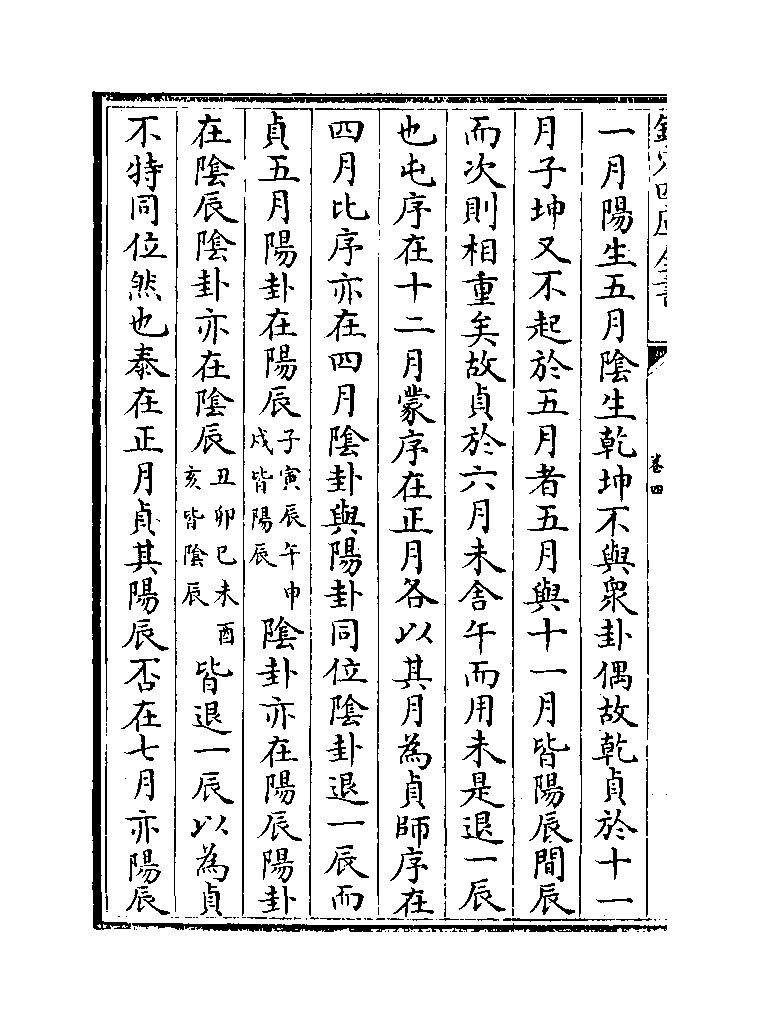 欽定四庫全書
卷四
一月陽生五月陰生乾坤不與衆卦偶故乾貞於十一
月子坤又不起於五月者五月與十一月皆陽辰間辰
而次則相重矣故貞於六月未舍午而用未是退一辰
也屯序在十二月蒙序在正月各以其月為貞師序在
四月比序亦在四月陰卦與陽卦同位陰卦退一辰而
貞五月陽卦在陽辰子寅辰午申戌皆陽辰陰卦亦在陽辰陽卦
在陰辰陰卦亦在陰辰丑卯巳未酉亥皆陰辰皆退一辰以為貞
不特同位然也泰在正月貞其陽辰否在七月亦陽辰